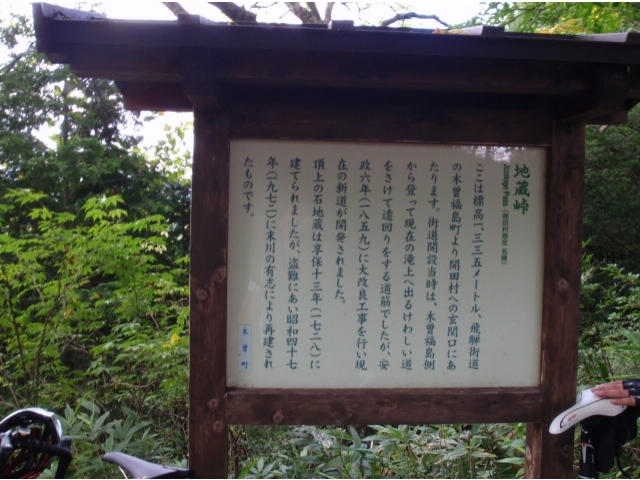 地蔵峠
Jizoutoge Pass
ここは標高一、三三五メートル、飛騨街道
の木曽福島町より開田村への玄関口にあ
たります。街道開設当時は、木曽福島側
から登って現在の滝上へ出るけわしい道
をさけて遠回りをする道筋でしたが、安
政六年(一八五九)に大改良工事を行い現
在の新道が開発されました。
頂上の石地蔵は享保十三年(一七二八)に
建てられましたが、盗難にあい昭和四十七
年(一九七二)に末川の有志により再建され
たものです。
木曽町